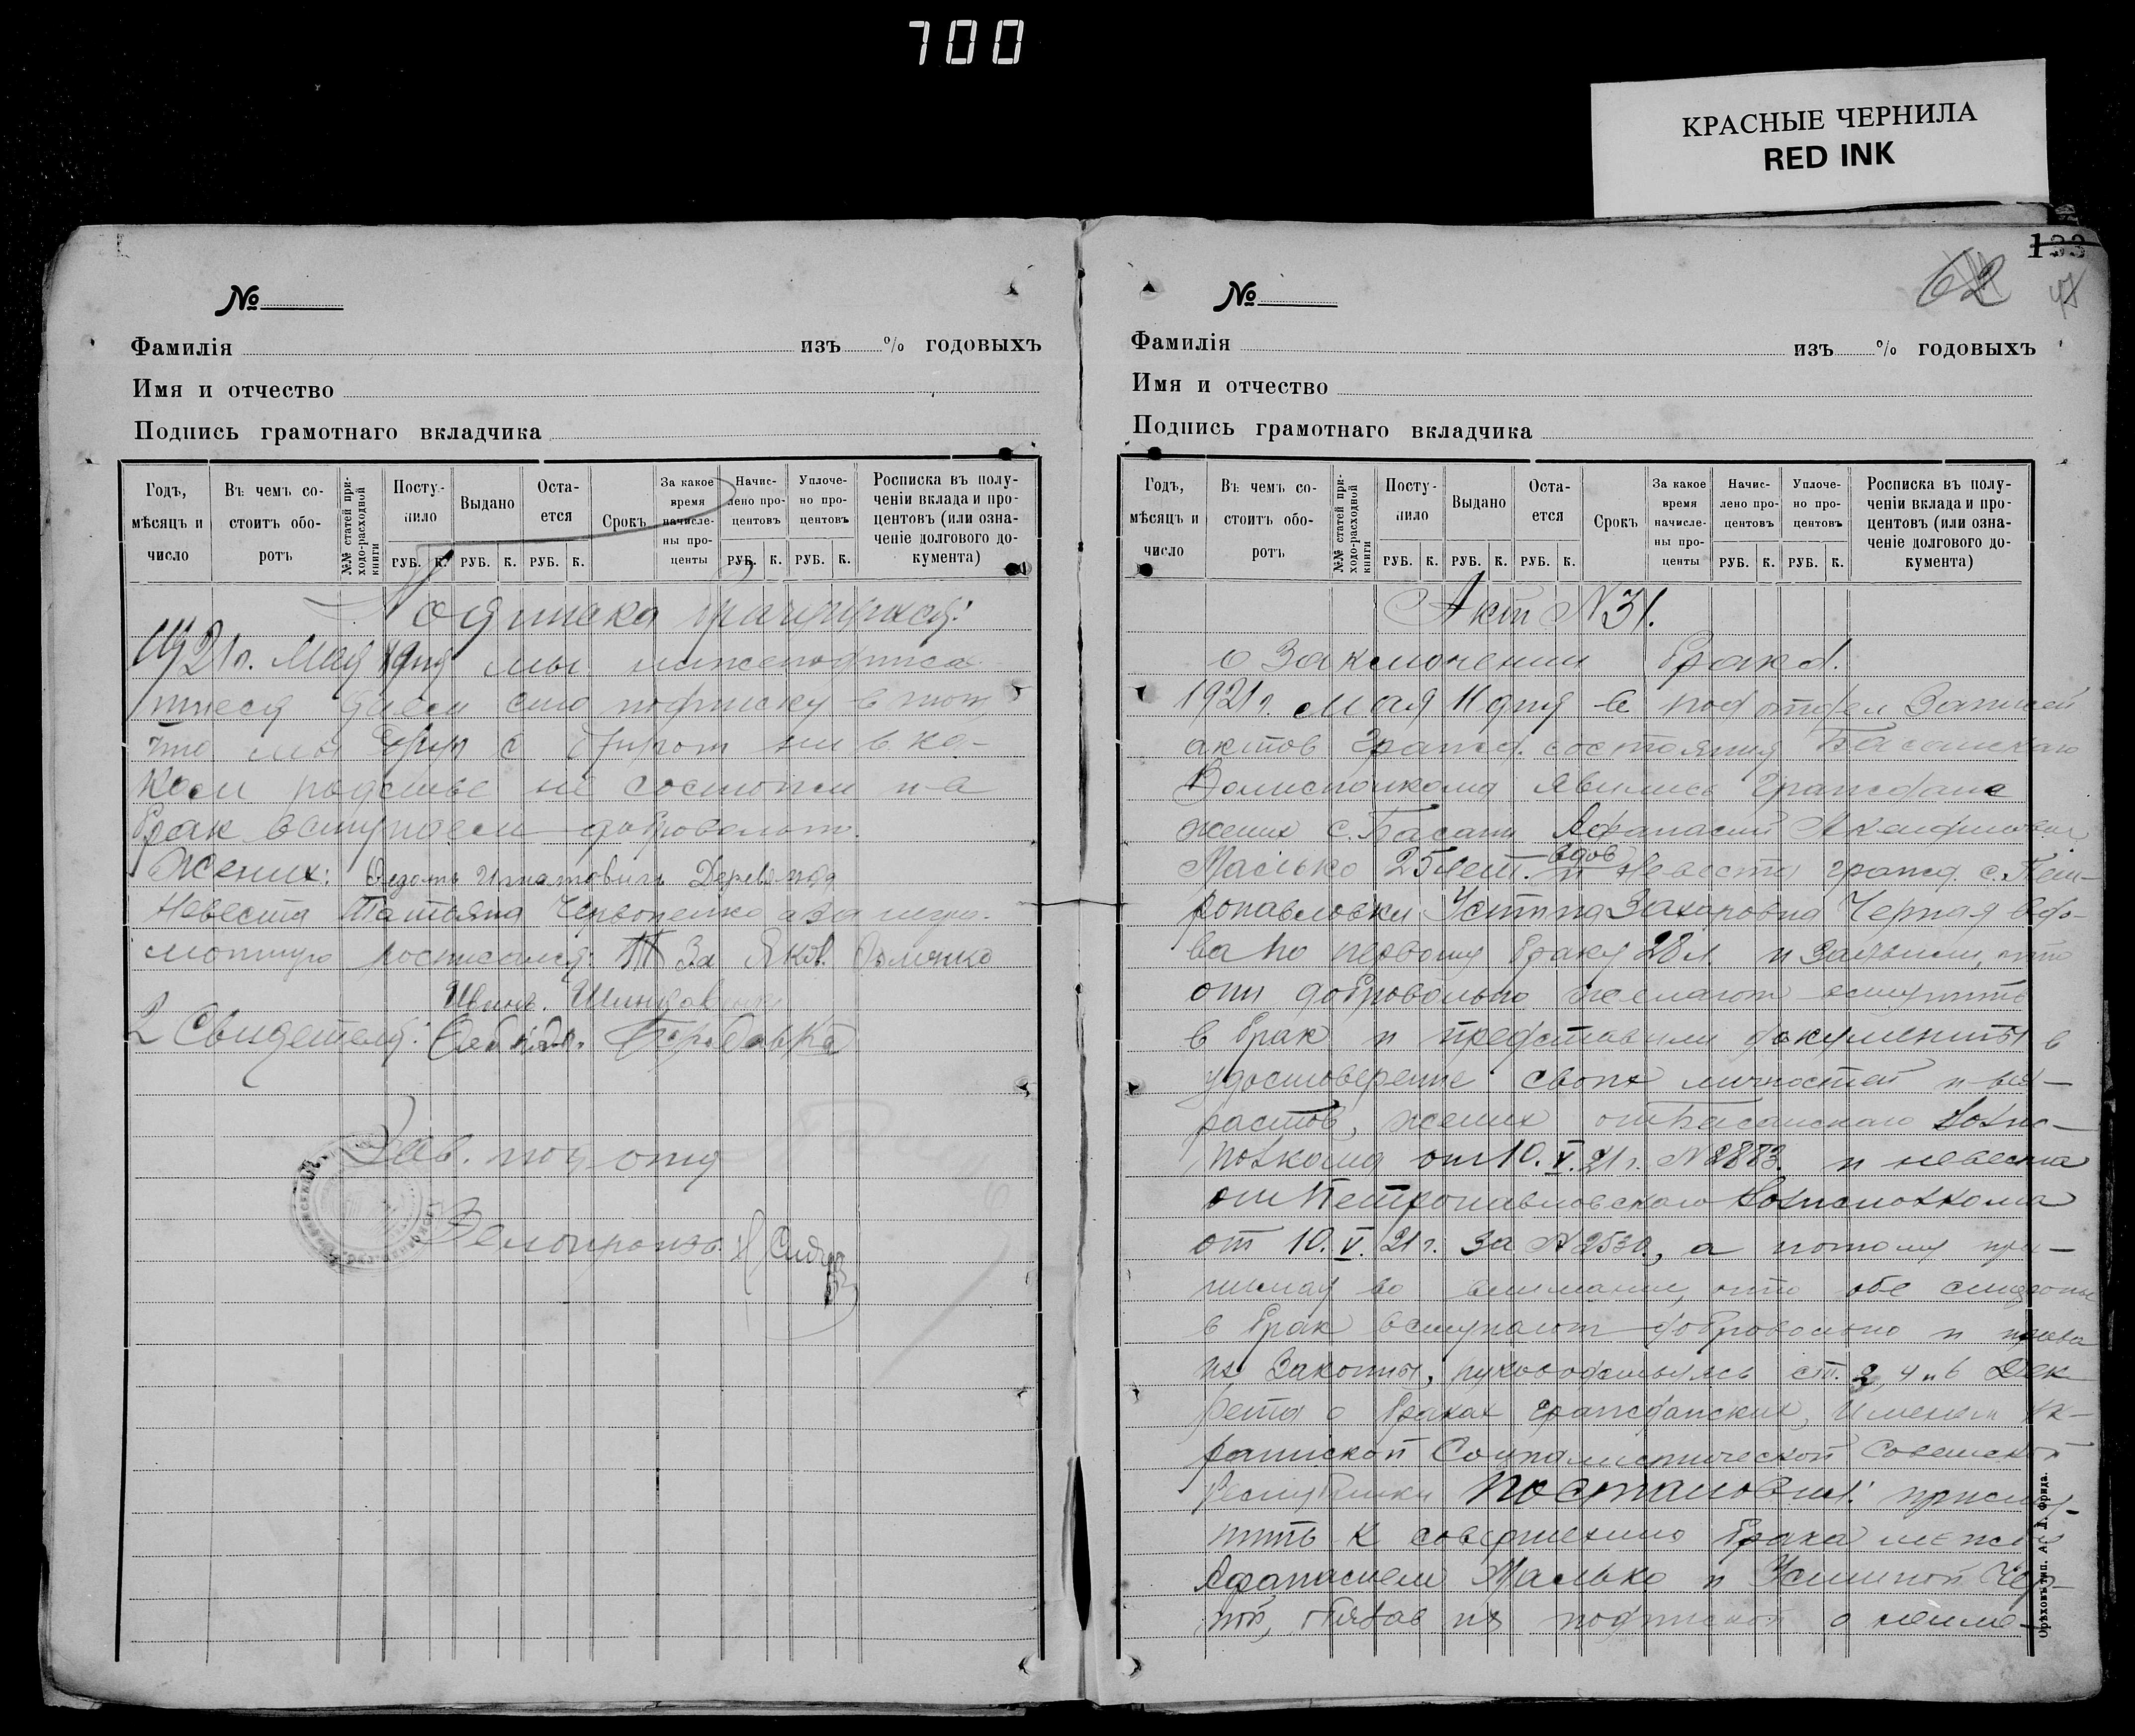 700
КРАСНЫЕ ЧЕРНИЛА
RED INK
№
Фамилія из % годовыхъ
Имя и отчество
Подпись грамотнаго вкладчика
Годъ, мѣсяцъ и число
Въ чемъ состоитъ оборотъ
№№ статей приходо-расходной книги
Поступило РУБ. К.
Выдано РУБ. К.
Остается РУБ. К.
Срокъ
За какое время начислены проценты
Начислено процентовъ РУБ. К.
Уплочено процентовъ РУБ. К.
Росписка въ полученіи вклада и процентовъ (или означеніе долгового документа)
Подписка брачущихся:
1921г. Мая 11 дня мы нижеподписа
вшиеся даем сию подписку в том,
что мы друг с другом ни в ка-
ком родстве не состоим и в
брак вступаем добровольно.
Жених: Федотъ Игнатовичъ
Невеста Татьяна Червоненко а за негра-
мотную росписался: За Яков.
2 Свидетеля:
Зав. под отд
Делопроизв.
133
62
№
Фамилія изъ % годовыхъ
Имя и отчество
Подпись грамотнаго вкладчика
Годъ, мѣсяцъ и число
Въ чемъ состоитъ оборотъ
№№ статей приходо-расходной книги
Поступило РУБ. К.
Выдано РУБ. К.
Остается РУБ. К.
Срокъ
За какое время начислены проценты
Начислено процентовъ РУБ. К.
Уплочено процентовъ РУБ. К.
Росписка въ полученіи вклада и процентовъ (или означеніе долгового документа)
Акт N 31.
о Заключении брака.
1921г. Мая 11 дня в под отдел Записей
актов гражд. состояния Басанскаго
Волисполкома явились граждане
жених с. Басани Афанасий
Масько 25 лет. вдов и Невеста гражд. с. Пет-
ропавловки Устина Захаровна Черная вдо-
ва по первому браку 28 л. и заявили, что
они добровольно желают вступить
в брак и представили документы в
удостоверение своих личностей и воз-
растов, жених от Басанскаго Волис-
полкома от 10. V. 21 г. N 2873. и невеста
от Петропавловскаго Волисполкома
от 10. V. 21 г. за N 2530, а потому при-
нимая во внимание, что обе стороны
в брак вступают добровольно и права
их законны, руководствуясь ст. 2, 4 и 6 Дек
рета о браках гражданских, Именем Ук-
раинской Социалистической Советской
Республики Постановил: присту-
пить к совершению брака между
Афанасием Масько и Устиной Чер-
ной, обязав их подпиской о неиме-
Орѣховъ тип. А. Л. Фрида.